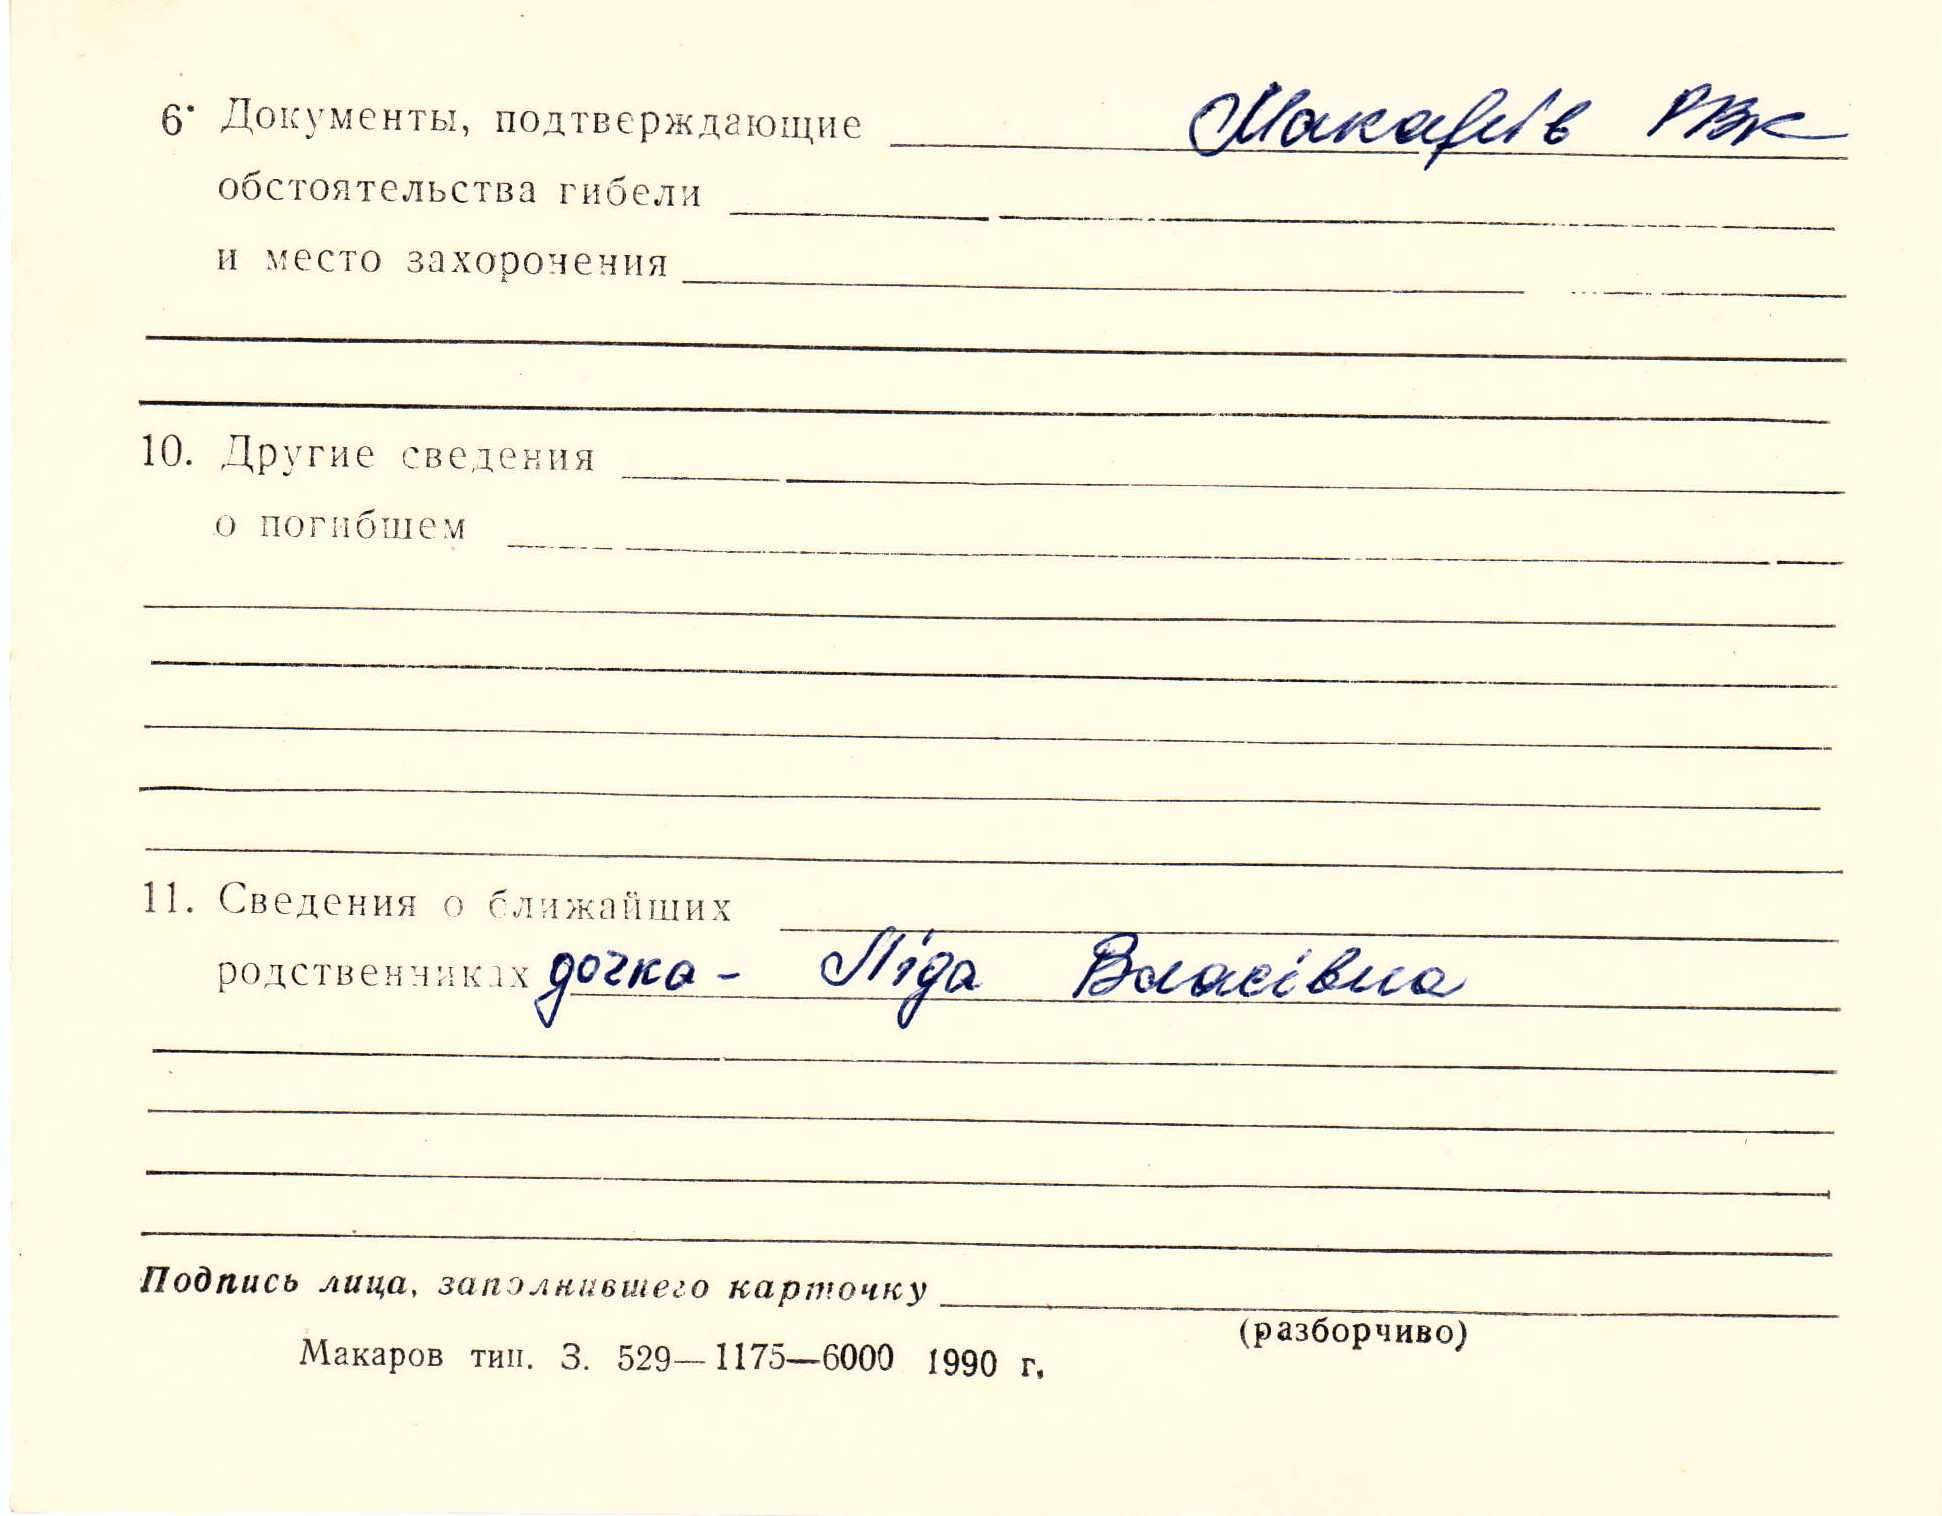 6. Документы, подтверждающие Макарів РВК
обстоятельства гибели
и место захоронения
10. Другие сведения
о погибшем
11. Сведения о ближайших
родственниках дочка - Ліда Власівна
Подпись лица, заполнившего карточку
(разборчиво)
Макаров тип. З. 529—1175—6000 1990 г.